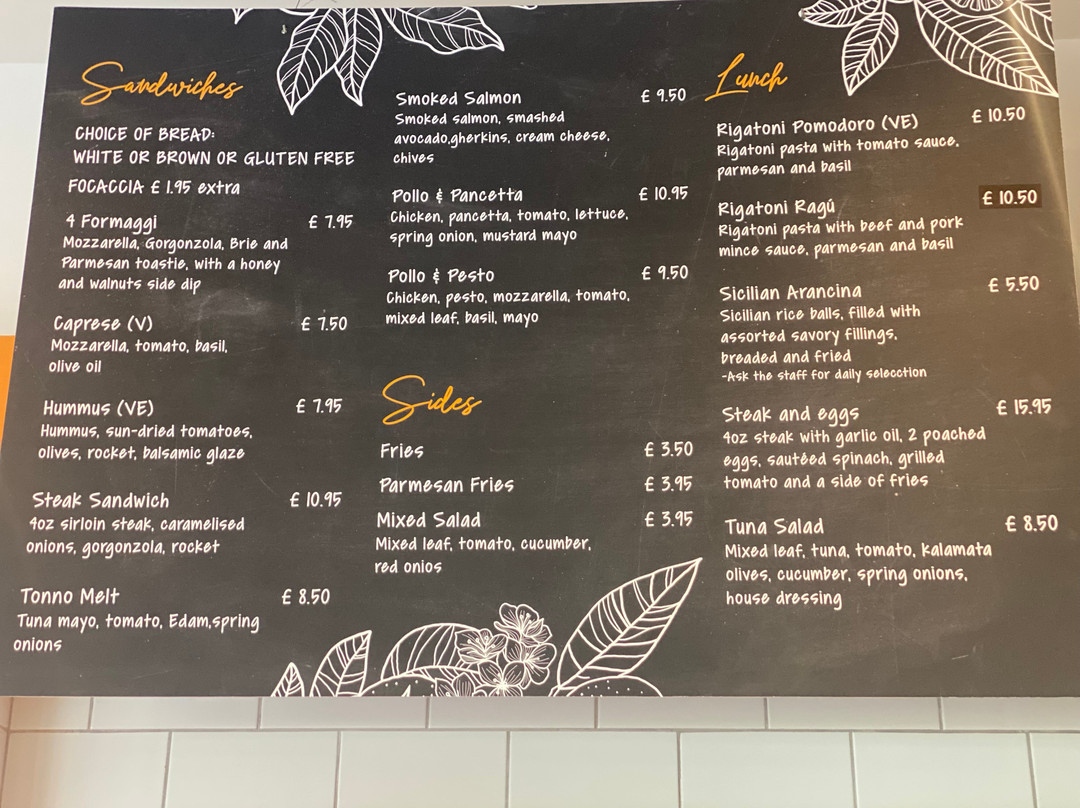 Sandwiches
CHOICE OF BREAD:
WHITE OR BROWN OR GLUTEN FREE
FOCACCIA £ 1.95 extra
4 Formaggi £ 7.95
Mozzarella, Gorgonzola, Brie and
Parmesan toastie, with a honey
and walnuts side dip
Caprese (V) £ 7.50
Mozzarella, tomato, basil,
olive oil
Hummus (VE) £ 7.95
Hummus, sun-dried tomatoes,
olives, rocket, balsamic glaze
Steak Sandwich £ 10.95
4oz sirloin steak, caramelised
onions, gorgonzola, rocket
Tonno Melt £ 8.50
Tuna mayo, tomato, Edam,spring
onions
Smoked Salmon £ 9.50
Smoked salmon, smashed
avocado,gherkins, cream cheese,
chives
Pollo & Pancetta £ 10.95
Chicken, pancetta, tomato, lettuce,
spring onion, mustard mayo
Pollo & Pesto £ 9.50
Chicken, pesto, mozzarella, tomato,
mixed leaf, basil, mayo
Sides
Fries £ 3.50
Parmesan Fries £ 3.95
Mixed Salad £ 3.95
Mixed leaf, tomato, cucumber,
red onios
Lunch
Rigatoni Pomodoro (VE) £ 10.50
Rigatoni pasta with tomato sauce,
parmesan and basil
Rigatoni Ragú £ 10.50
Rigatoni pasta with beef and pork
mince sauce, parmesan and basil
Sicilian Arancina £ 5.50
Sicilian rice balls, filled with
assorted savory fillings,
breaded and fried
-Ask the staff for daily selecction
Steak and eggs £ 15.95
4oz steak with garlic oil, 2 poached
eggs, sautéed spinach, grilled
tomato and a side of fries
Tuna Salad £ 8.50
Mixed leaf, tuna, tomato, kalamata
olives, cucumber, spring onions,
house dressing